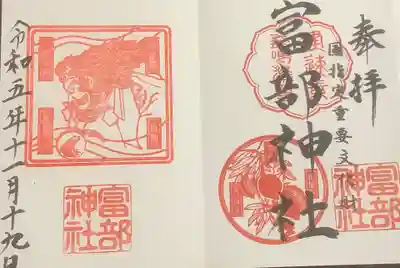 奉拝
国指定重要文化財
富部神社
富部
神社
令和五年十一月十九日
富部
神社